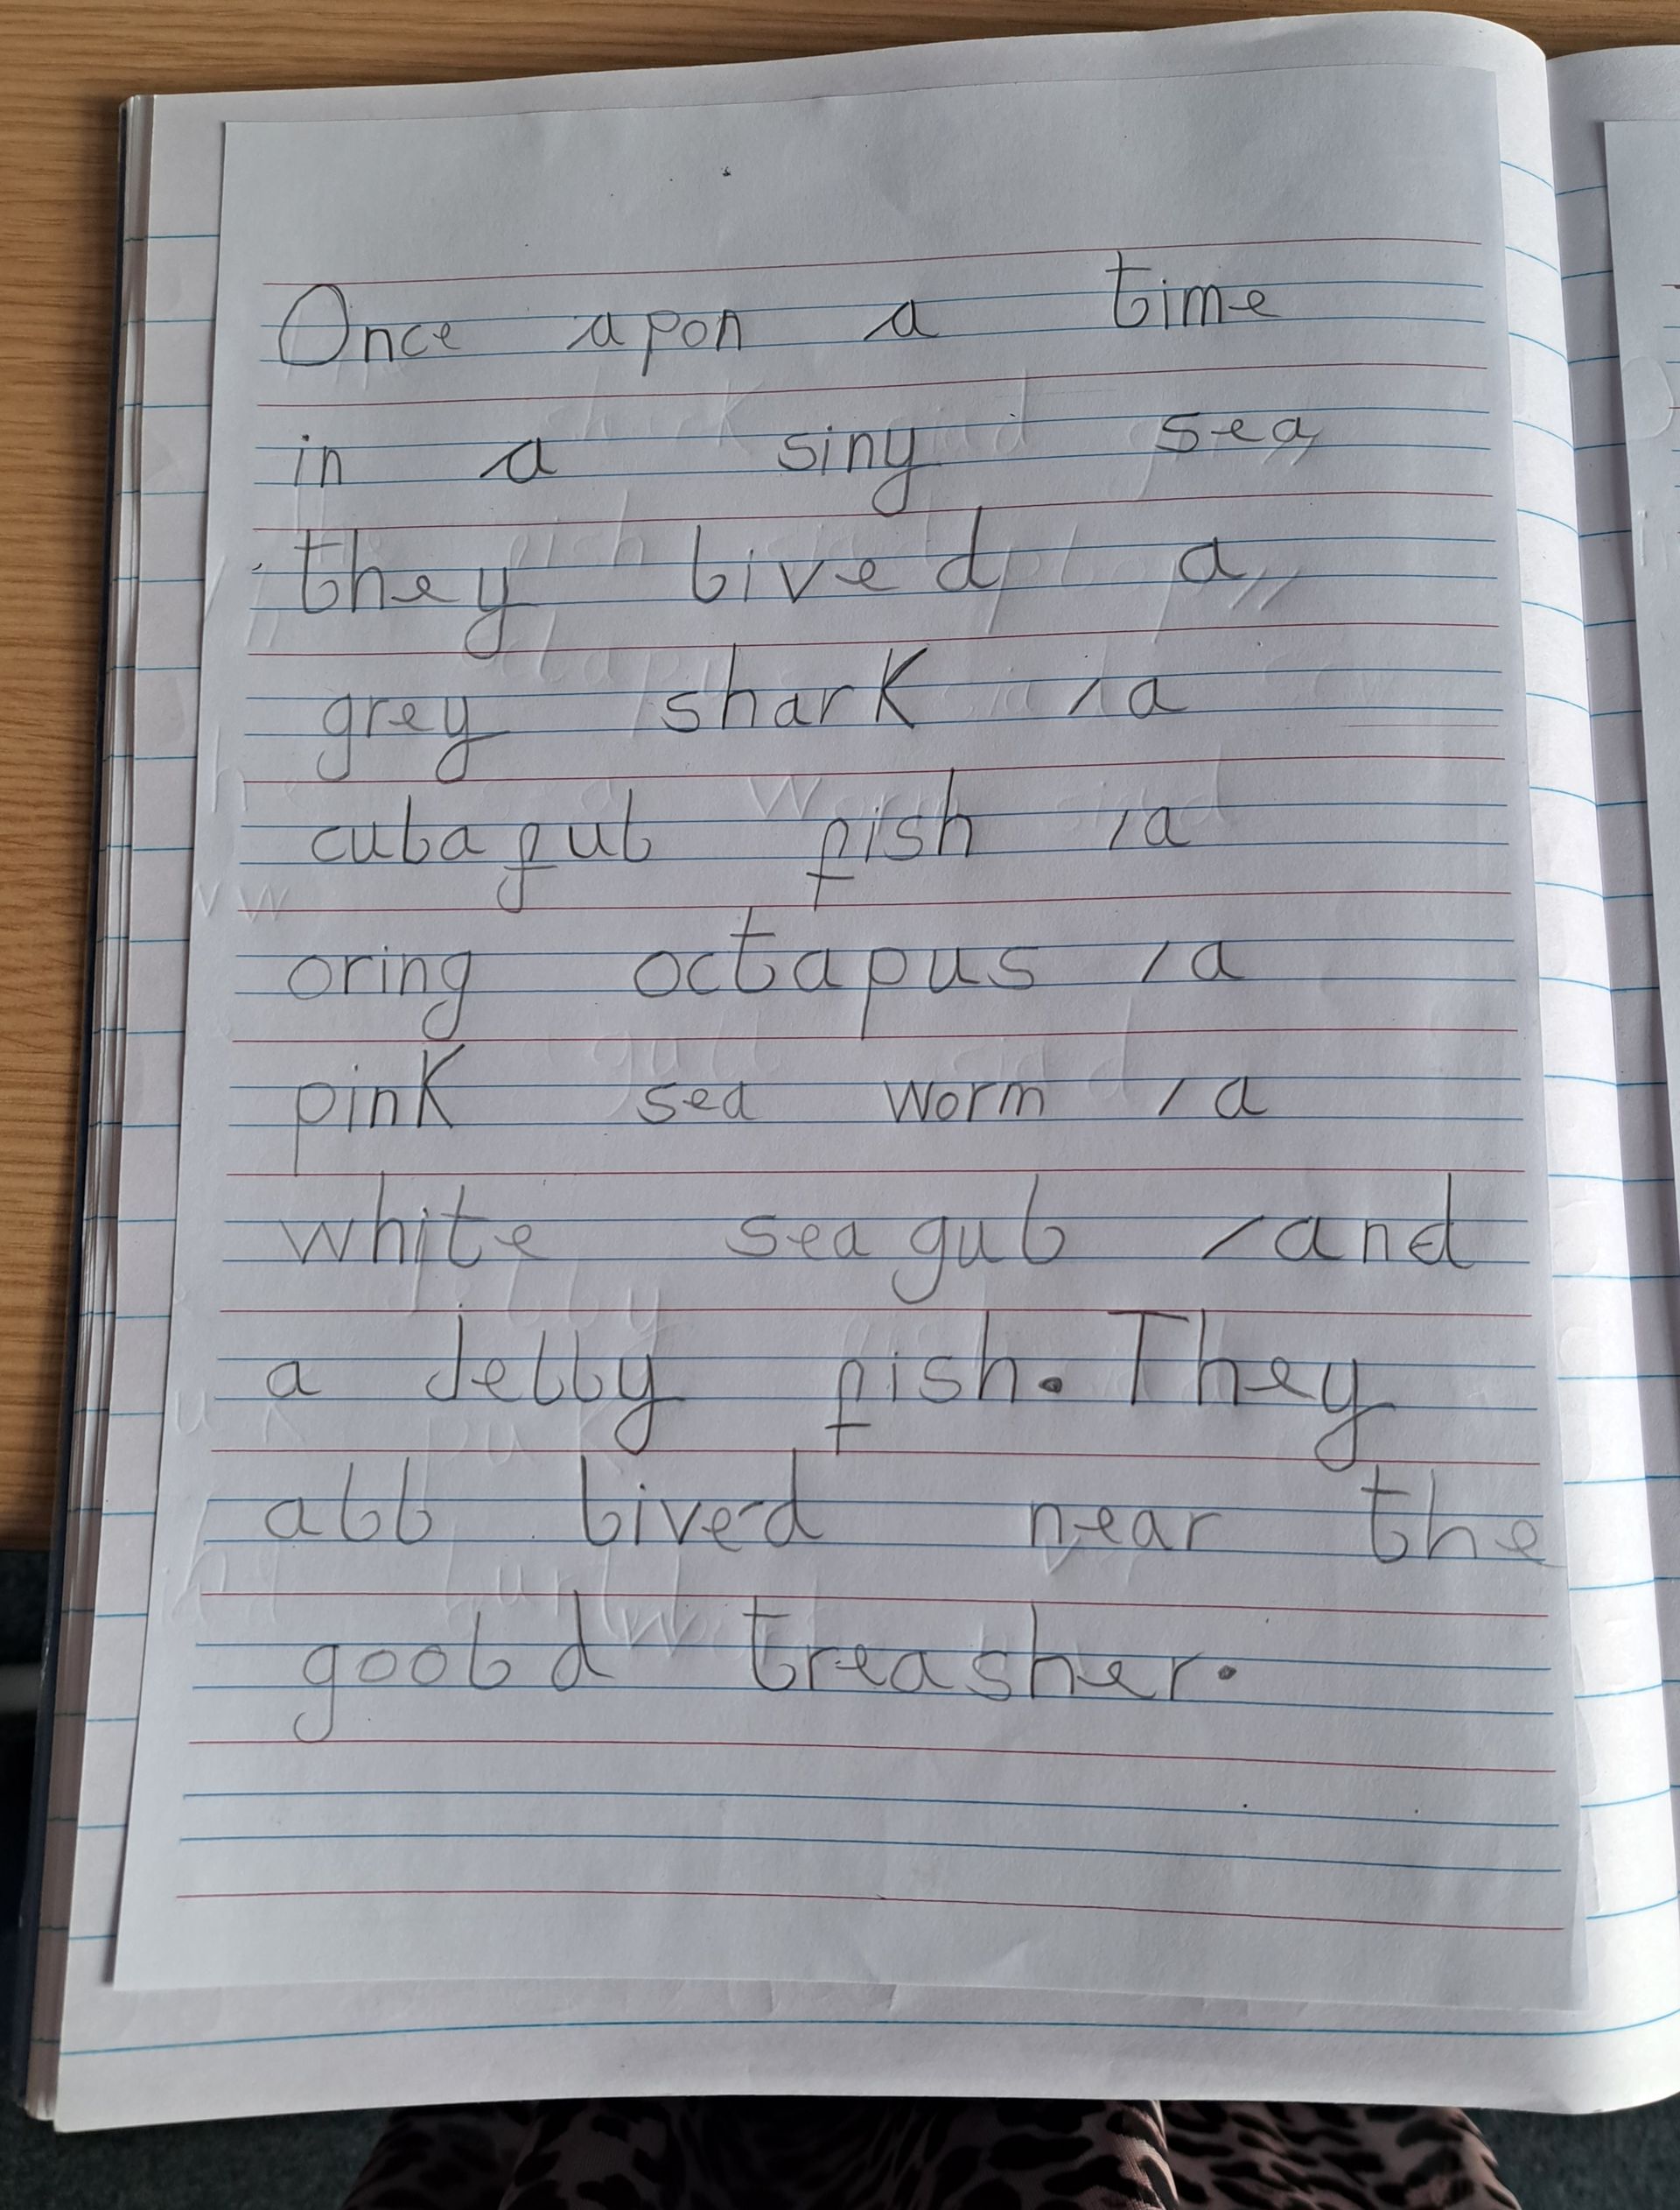 Once apon a time
in a siny sea
they lived a
grey shark , a
culaful fish , a
oring octapus , a
pink sea worm , a
white seagul , and
a Jelly fish. They
all lived near the
goold treasher.